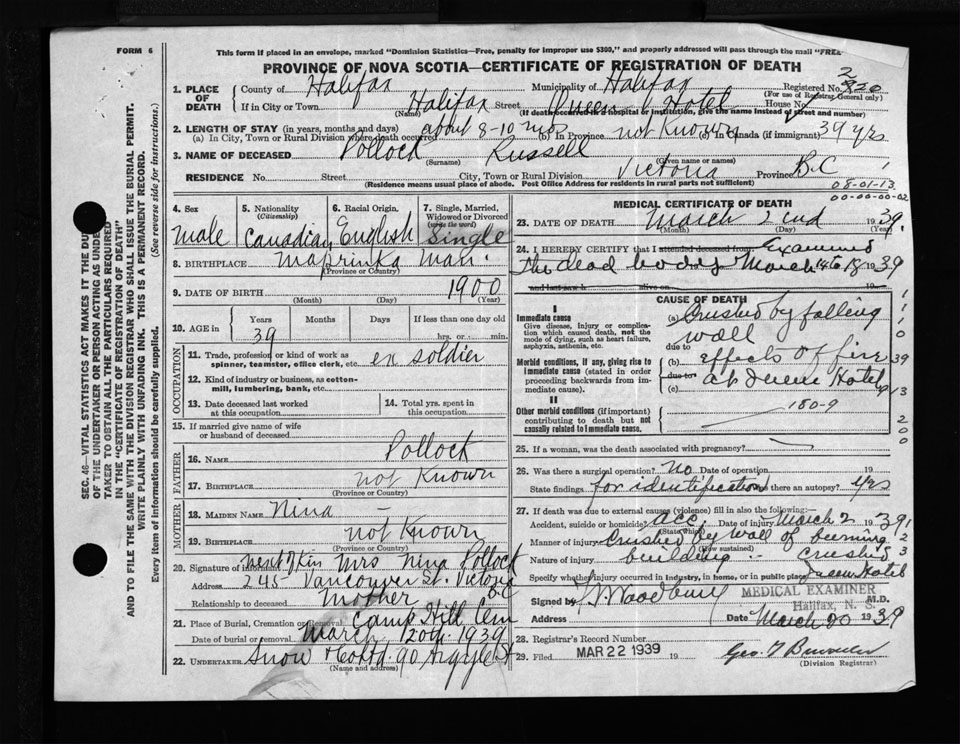 FORM 6
This form if placed in an envelope, marked "Dominion Statistics—Free, penalty for improper use $300," and properly addressed will pass through the mail "FREE
PROVINCE OF NOVA SCOTIA—CERTIFICATE OF REGISTRATION OF DEATH
1. PLACE OF DEATH County of Halifax Municipality of Halifax Registered No. 820
(For use of Registrar General only)
If in City or Town Halifax Street Queen Hotel House No.
(Name) (If death occurred in a hospital or institution, give the name instead of street and number)
2. LENGTH OF STAY (in years, months and days)
(a) In City, Town or Rural Division where death occurred about 8-10 mos (b) In Province not Known (c) In Canada (if immigrant) 39 yrs
3. NAME OF DECEASED Pollock Russell
(Surname) (Given name or names)
RESIDENCE No. Street City, Town or Rural Division Victoria Province B.C
(Residence means usual place of abode. Post Office Address for residents in rural parts not sufficient)
08-01-13
00-00-00-02
4. Sex 5. Nationality (Citizenship) 6. Racial Origin. 7. Single, Married, Widowed or Divorced (write the word)
Male Canadian English Single
8. BIRTHPLACE Man.
(Province or Country)
9. DATE OF BIRTH 1900
(Month) (Day) (Year)
10. AGE in Years Months Days If less than one day old
39 hrs. or min.
OCCUPATION
11. Trade, profession or kind of work as spinner, teamster, office clerk, etc. ex soldier
12. Kind of industry or business, as cotton-mill, lumbering, bank, etc.
13. Date deceased last worked at this occupation
14. Total yrs. spent in this occupation
15. If married give name of wife or husband of deceased
FATHER
16. NAME Pollock
17. BIRTHPLACE not Known
(Province or Country)
MOTHER
18. MAIDEN NAME Nina —
19. BIRTHPLACE not Known
(Province or Country)
20. Signature of informant next of Kin Mrs Nina Pollock
Address 245 Vancouver St. Victoria B.C
Relationship to deceased mother
21. Place of Burial, Cremation or Removal Camp Hill Cem
Date of burial or removal March 20th 1939
22. UNDERTAKER Snow & Co Ltd 90 Argyle St
MEDICAL CERTIFICATE OF DEATH
23. DATE OF DEATH March 2nd 1939
(Month) (Day) (Year)
24. I HEREBY CERTIFY that I attended deceased from Examined
The dead body March 14 to 18 1939
and last saw h alive on 19
CAUSE OF DEATH
I
Immediate cause
Give disease, injury or complication which caused death, not the mode of dying, such as heart failure, asphyxia, asthenia, etc.
(a) Crushed by falling wall
due to
Morbid conditions, if any, giving rise to immediate cause (stated in order proceeding backwards from immediate cause).
(b) effects of fire
due to at Queen Hotel
(c)
II
Other morbid conditions (if important) contributing to death but not causally related to immediate cause.
180-9
25. If a woman, was the death associated with pregnancy?
26. Was there a surgical operation? No Date of operation 19
State findings for identification Was there an autopsy? yes
27. If death was due to external causes (violence) fill in also the following:—
Accident, suicide or homicide? acc. Date of injury March 2 1939
(State which)
Manner of injury Crushed by wall of burning
(How sustained)
Nature of injury building - Crushing
Specify whether injury occurred in industry, in home, or in public place Queen Hotel
Signed by M.D.
MEDICAL EXAMINER
Halifax, N. S.
Address Date March 20 1939
28. Registrar's Record Number
29. Filed MAR 22 1939 19
(Division Registrar)
SEC. 46—VITAL STATISTICS ACT MAKES IT THE DU
OF THE UNDERTAKER OR PERSON ACTING AS UNDE
TAKER TO OBTAIN ALL THE PARTICULARS REQUIRED
IN THE "CERTIFICATE OF REGISTRATION OF DEATH"
AND TO FILE THE SAME WITH THE DIVISION REGISTRAR WHO SHALL ISSUE THE BURIAL PERMIT.
WRITE PLAINLY WITH UNFADING INK. THIS IS A PERMANENT RECORD.
Every item of information should be carefully supplied. (See reverse side for instructions.)